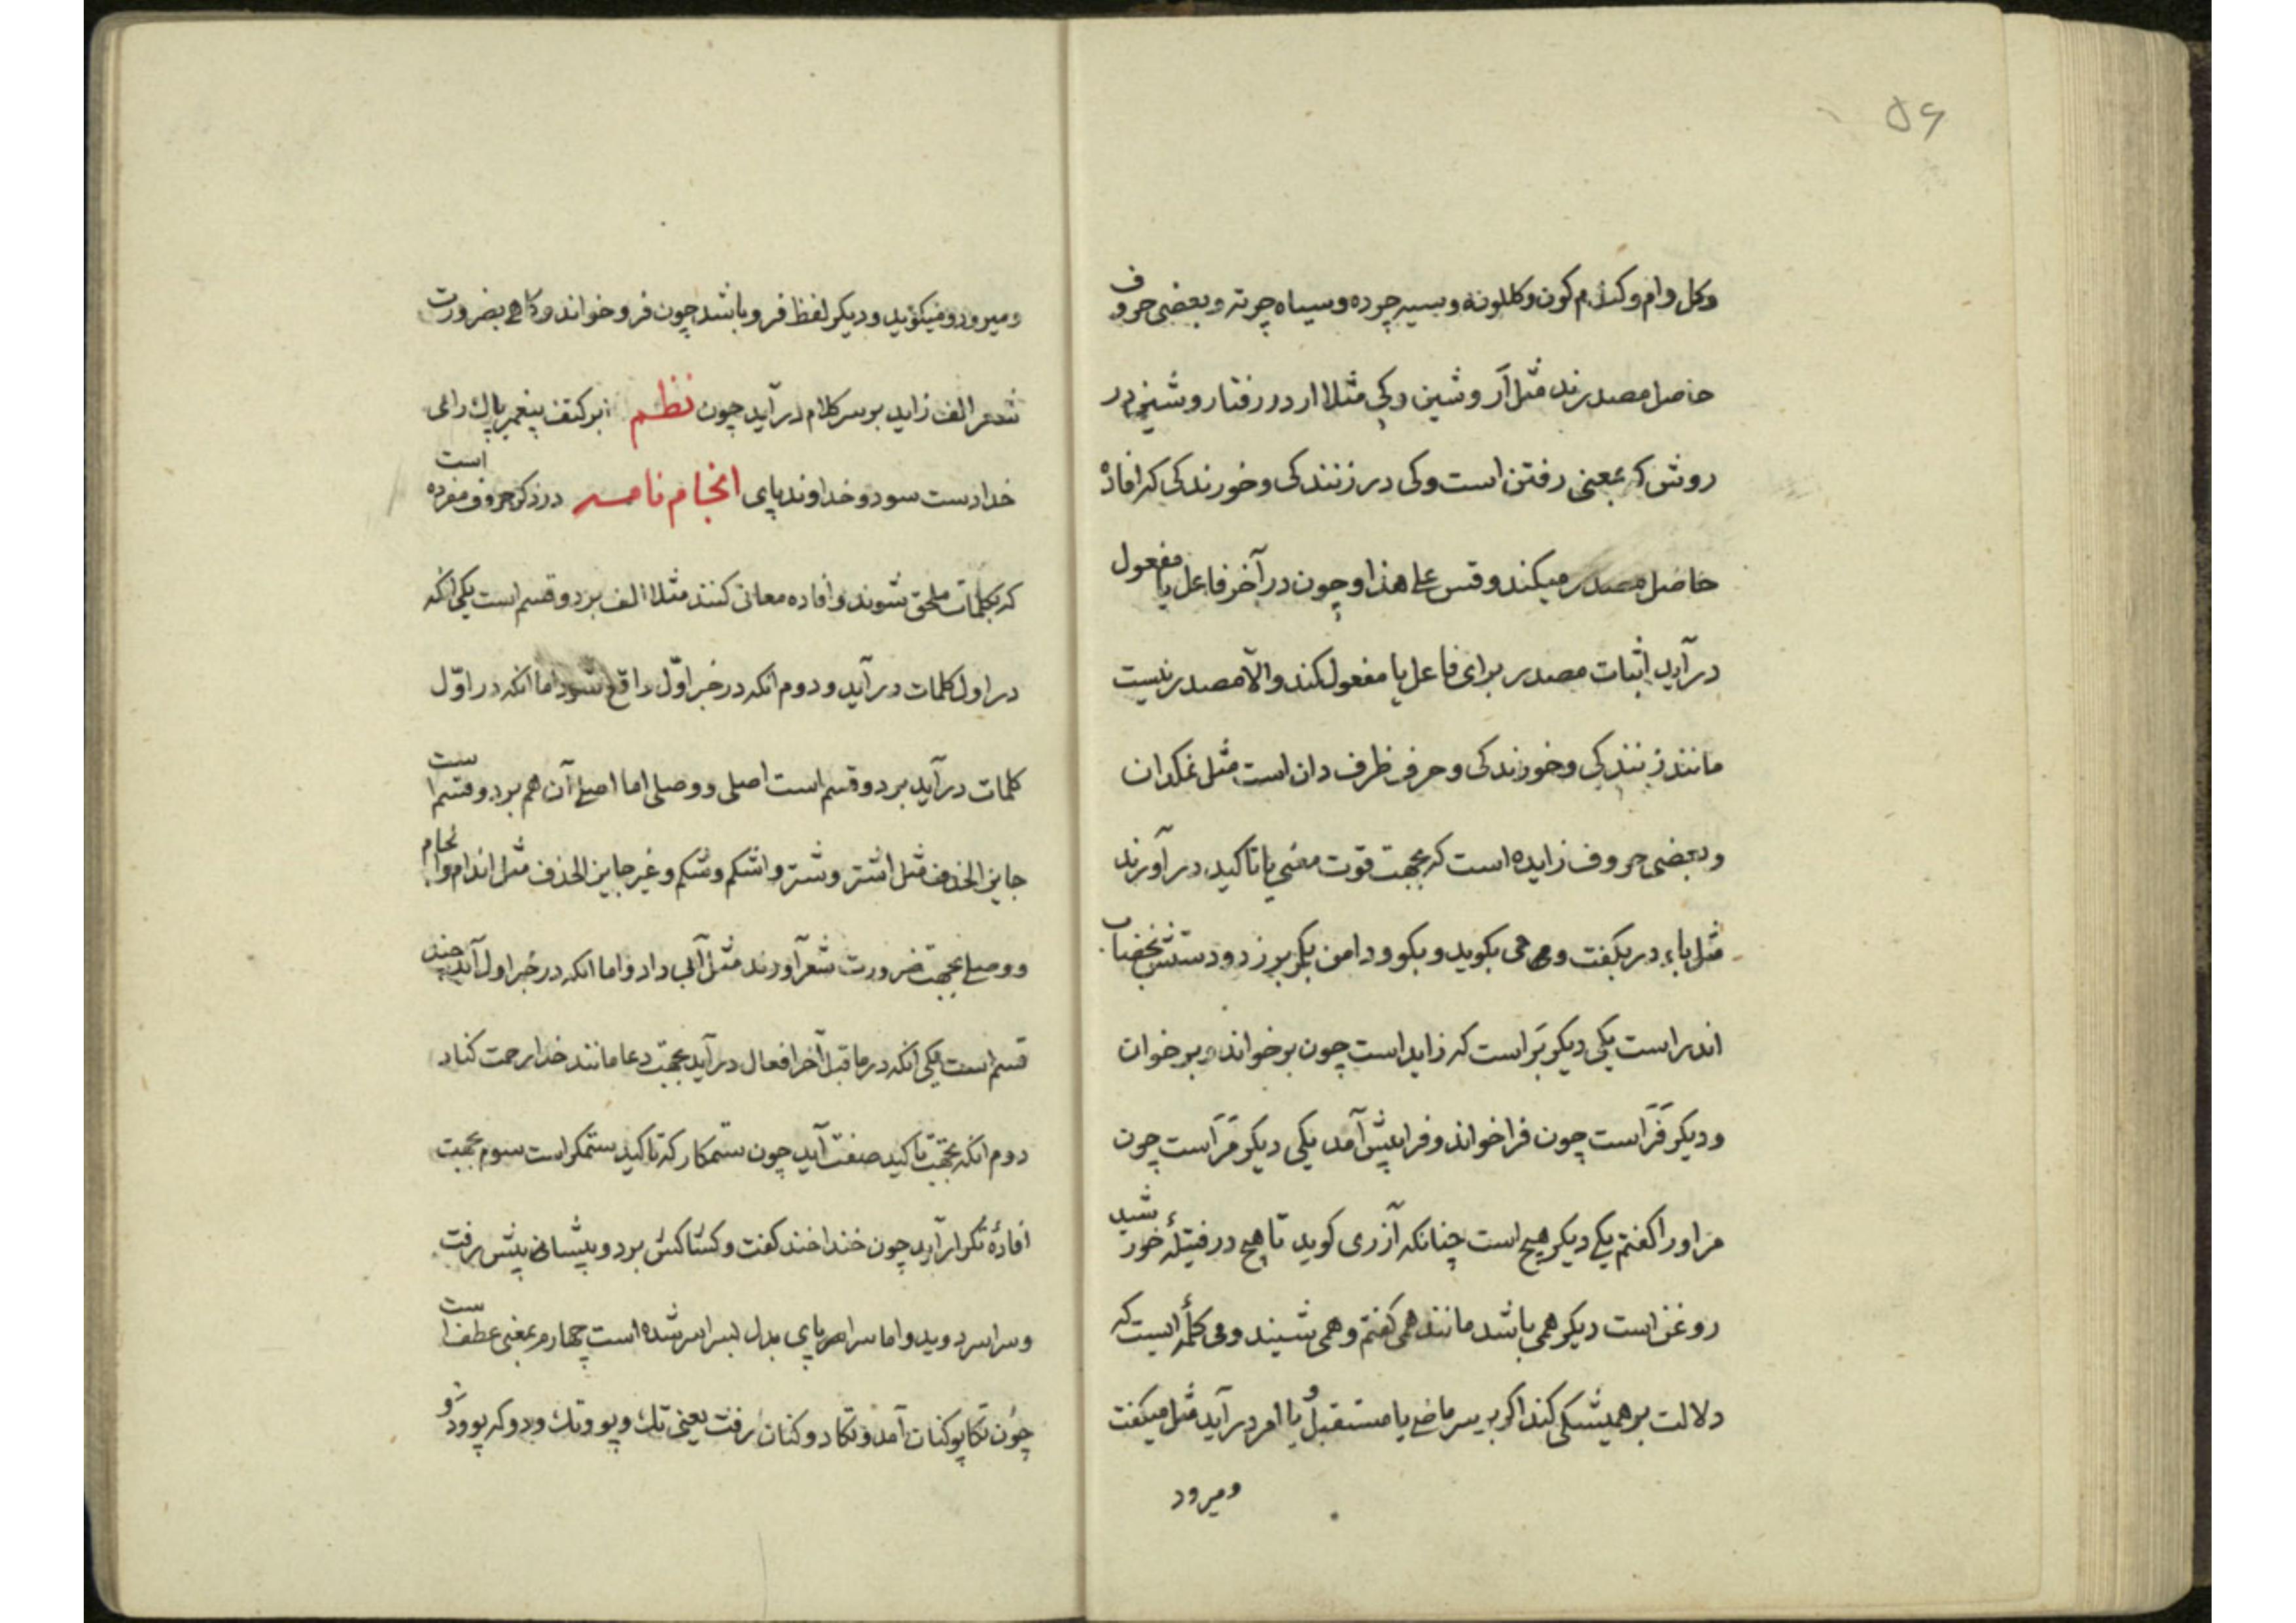 ۵۶
وکل وام وکندم کون وکللونه وسیه چرده وسیاه چرته وبعضی حروف
حاصل مصدرند مثل آر وشین وکی مثلا ار در رفتار وشین در
روش که بمعنی رفتن است وکی در زنندکی وخورندکی که افادهٔ
حاصل مصدر میکند وقس علی هذا وچون در آخر فاعل یا مفعول
درآید اثبات مصدر برای فاعل یا مفعول کند والّا مصدر نیست
مانند زنندکی وخورندکی وحرف ظرف دان است مثل نمکدان
وبعضی حروف زایده است که بجهت قوت معنی یا تاکید درآورند
مثل باء در بکفت و می بکوید وبکو ودامن بکهر برزد ودستش بخضاب
اندر است یکی دیکر بَر است که زاید است چون برخواند وبرخوان
ودیکر فَرَا است چون فراخواند وفراپیش آمد یکی دیکر مَر است چون
مر اورا کفتم یکی دیکر هیچ است چنانکه آزری کوید تا هیچ در فتیلهٔ خورشید
روغن است دیکر همی باشد مانند همی کفتم وهمی شیند ومی کلمهٔ ایست که
دلالت بر همیشکی کند اکر بر سر ماضی یا مستقبل ویا امر درآید مثل میکفت
ومیرود
ومیرود ومیکوید ودیکر لفظ فرو باشد چون فروخواند وکاهی بضرورت
شعر الف زاید بر سر کلام درآید چون نظم ابر کتف پیغمبر پاک رای
خدا دست سود وخداوند پای انجام نامه در ذکر حروف مفرده است
که بکلمات ملحق شوند وافاده معانی کنند مثلا الف بر دو قسم است یکی انکه
در اول کلمات درآید ودوم انکه در خبر اوّل واقع شود اما انکه در اوّل
کلمات درآید بر دو قسم است اصلی ووصلی اما اصلی آن هم بر دو قسم است
جایز الحذف مثل اشتر وشتر واشکم وشکم وغیر جایز الحذف مثل اندام وانجام
ووصلی بجهت ضرورت شعر آورند مثل آبی داد واما انکه در خبر اول آید چند
قسم است یکی انکه در ماقبل آخر افعال درآید بجهت دعا مانند خدا رحمت کناد
دوم انکه بجهت تاکید صفت آید چون ستمکار که تاکید ستمکر است سوم بجهت
افادهٔ تکرار آید چون خنداخند کفت وکشاکش برد وپیشاپیش رفت
وسراسر دوید واما سراپای بدل سراسر شده است چهارم بمعنی عطف است
چون تکاپو کنان آمد وتکادو کنان رفت یعنی تک وپو وتک ودو که پو ودَو